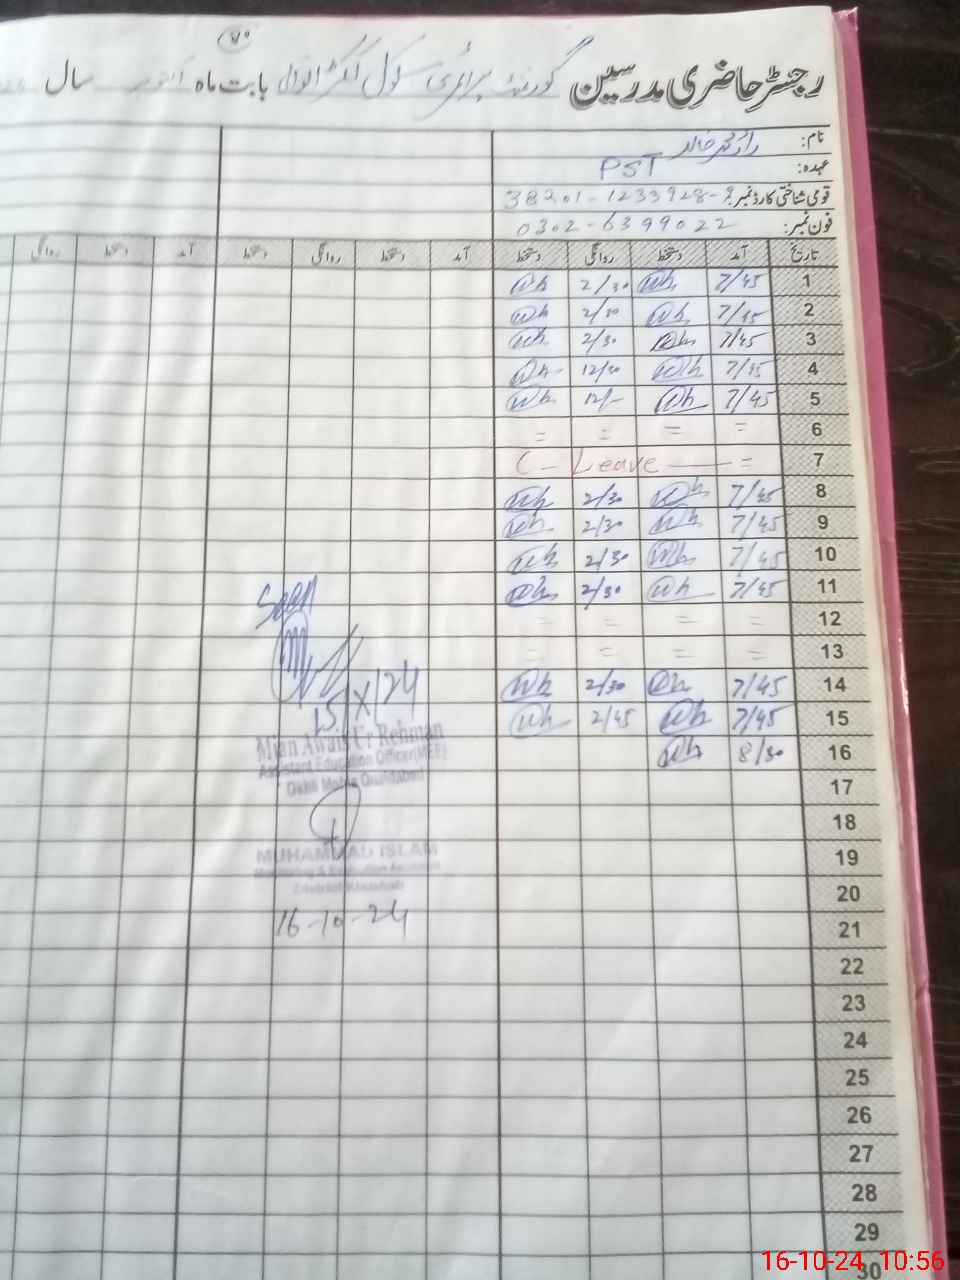 ۷۰
رجسٹر حاضری مدرسین گورنمنٹ پرائمری سکول بابت ماہ اکتوبر سال
نام: محمد خالد
عہدہ: PST
قومی شناختی کارڈ نمبر: 38201-1233928-9
فون نمبر: 0302-6399022
تاریخ آمد دستخط روانگی دستخط آمد دستخط روانگی دستخط آمد دستخط روانگی
1 7/45 2/30
2 7/45 2/30
3 7/45 2/30
4 7/45
5 7/45 12/-
6 = = = =
7 C - Leave =
8 7/45 2/30
9 7/45 2/30
10 7/45 2/30
11 7/45 2/30
12 = = = =
13 = = = =
14 7/45 2/30
15 7/45 2/45
16 8/30
17
18
19
20
21
22
23
24
25
26
27
28
29
30
Seen
15/X/24
Mian Awais Ur Rehman
Assistant Education Officer(MEE)
MUHAMMAD ISLAM
Monitoring & Evaluation Assistant
District Khushab
16-10-24
16-10-24 10:56